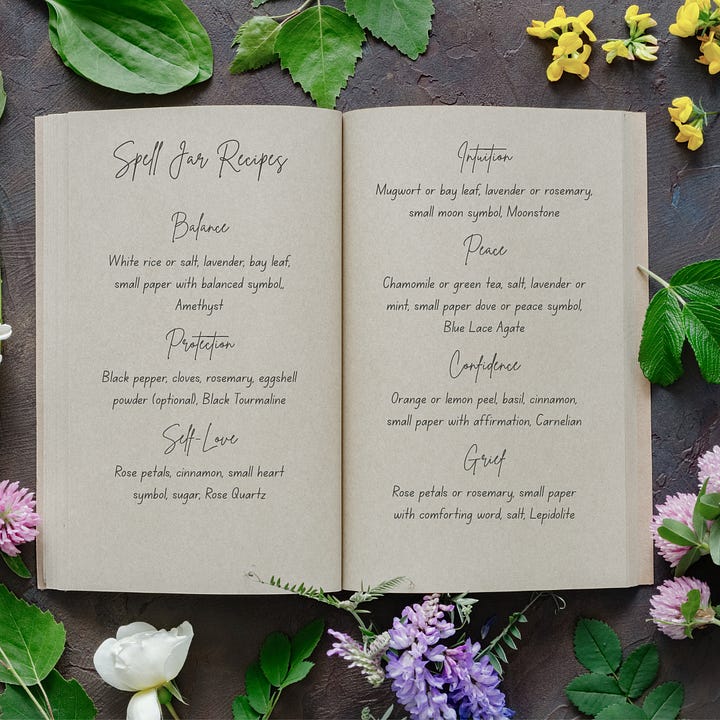 Spell Jar Recipes
Balance
White rice or salt, lavender, bay leaf,
small paper with balanced symbol,
Amethyst
Protection
Black pepper, cloves, rosemary, eggshell
powder (optional), Black Tourmaline
Self-Love
Rose petals, cinnamon, small heart
symbol, sugar, Rose Quartz
Intuition
Mugwort or bay leaf, lavender or rosemary,
small moon symbol, Moonstone
Peace
Chamomile or green tea, salt, lavender or
mint, small paper dove or peace symbol,
Blue Lace Agate
Confidence
Orange or lemon peel, basil, cinnamon,
small paper with affirmation, Carnelian
Grief
Rose petals or rosemary, small paper
with comforting word, salt, Lepidolite